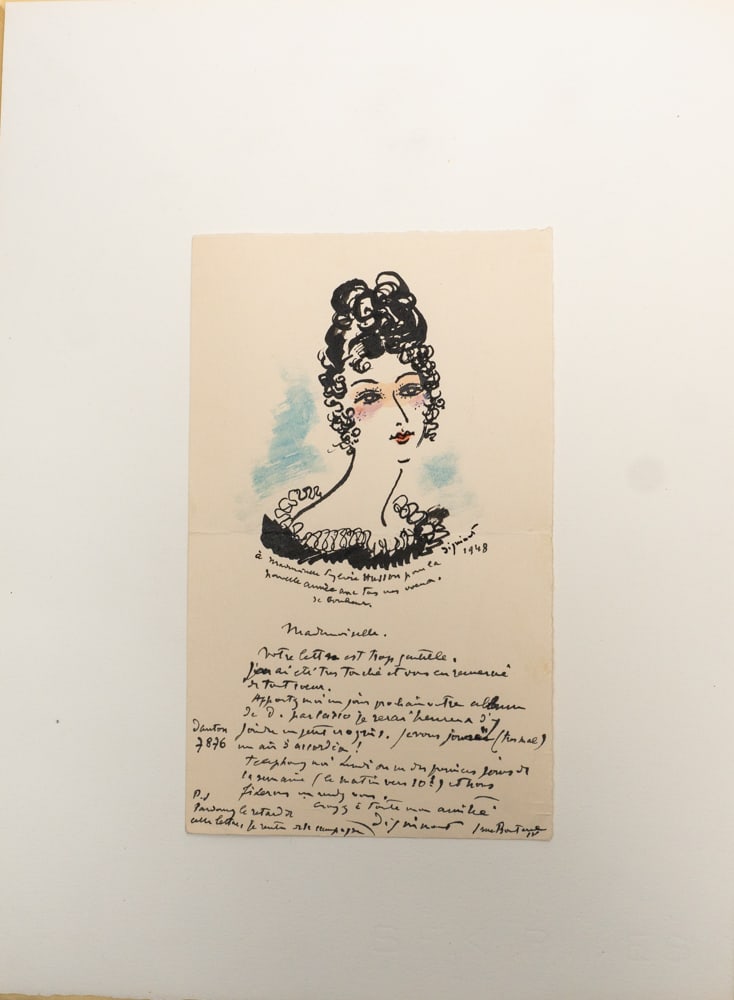 Dignimont 1948
à Mademoiselle Sylvie Husson pour la
nouvelle année avec tous mes voeux
de bonheur.
Mademoiselle.
Votre lettre est trop gentille.
J'en ai été très touché et vous en remercie
de tout coeur.
Apportez moi un jour prochain votre album
de D. je serai heureux d'y
joindre un petit croquis. je vous (normal)
un air d'accordéon !
Danton
7876
Telephonez moi Lundi ou un des premiers jours de
la semaine (le matin vers 10h) et nous
fixerons un rendez vous.
croyez à toute mon amitié
Dignimont
1 rue Boutarel
P.S
Pardonnez le retard de
cette lettre, je rentre de la campagne